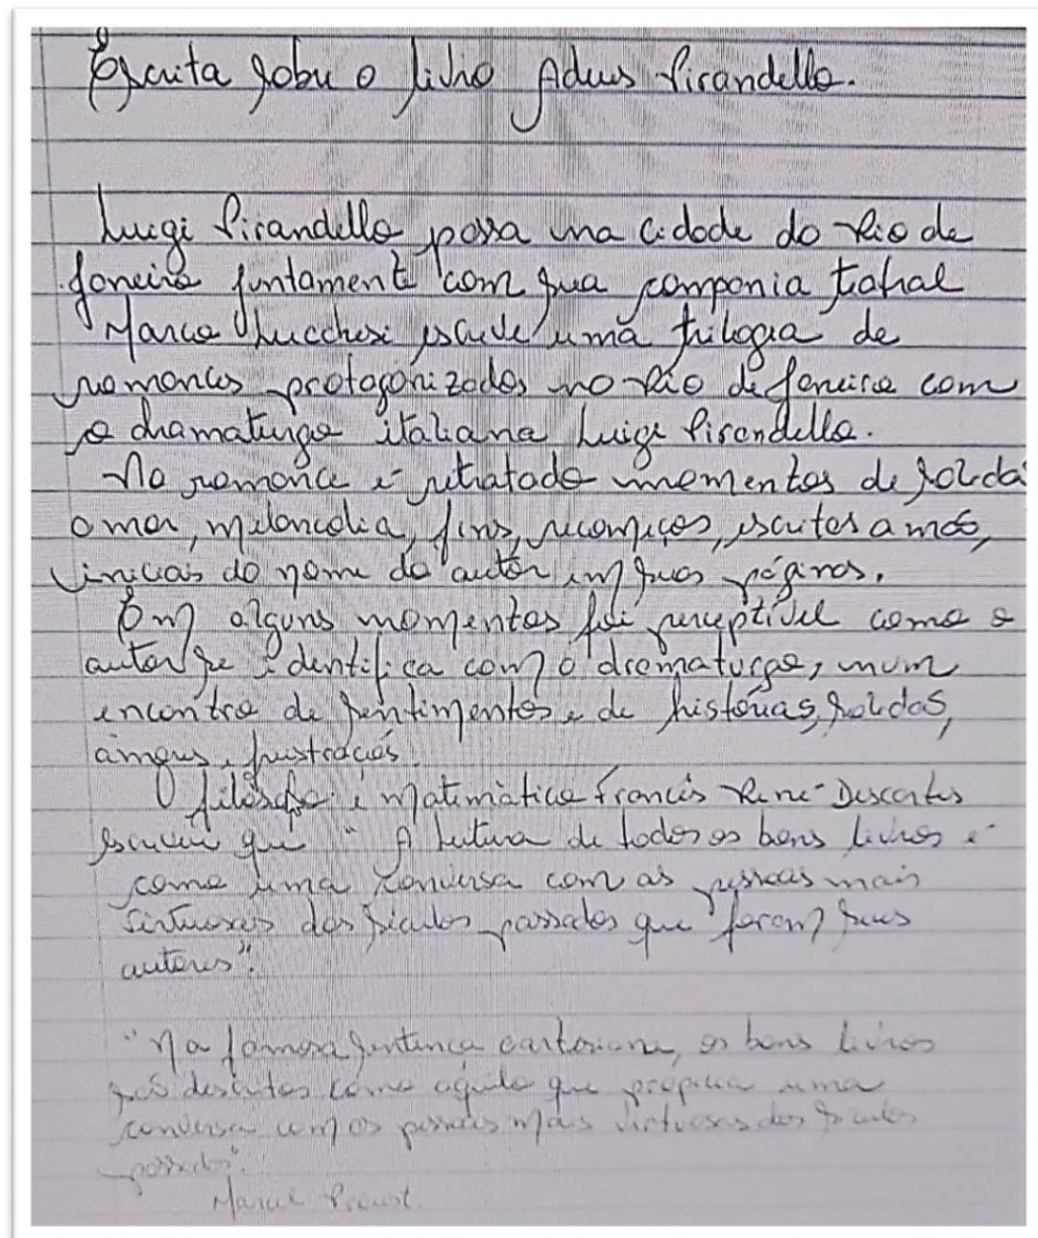 Escrita sobre o livro Adeus Pirandello.
Luigi Pirandello passa na cidade do Rio de
Janeiro juntamente com sua compania teatral
Marco Lucchesi escreve uma trilogia de
romances protagonizados no Rio de Janeiro com
o dramaturgo italiano Luigi Pirandello.
No romance é retratado momentos de solidã
amor, melancolia, fins, recomeços, escritos a mão,
iniciais do nome do autor em suas páginas.
Em alguns momentos foi perceptível como o
autor se identifica com o dramaturgo, num
encontro de sentimentos e de histórias, solidas,
amores, frustrações.
O filósofo e matemático francês René Descartes
escreveu que "A leitura de todos os bons livros é
como uma conversa com as pessoas mais
virtuosas dos séculos passados que foram seus
autores".
"Na famosa sentença cartesiana, os bons livros
são descritos como aquilo que propicia uma
conversa com as pessoas mais virtuosas dos séculos
passados".
Marcel Proust.